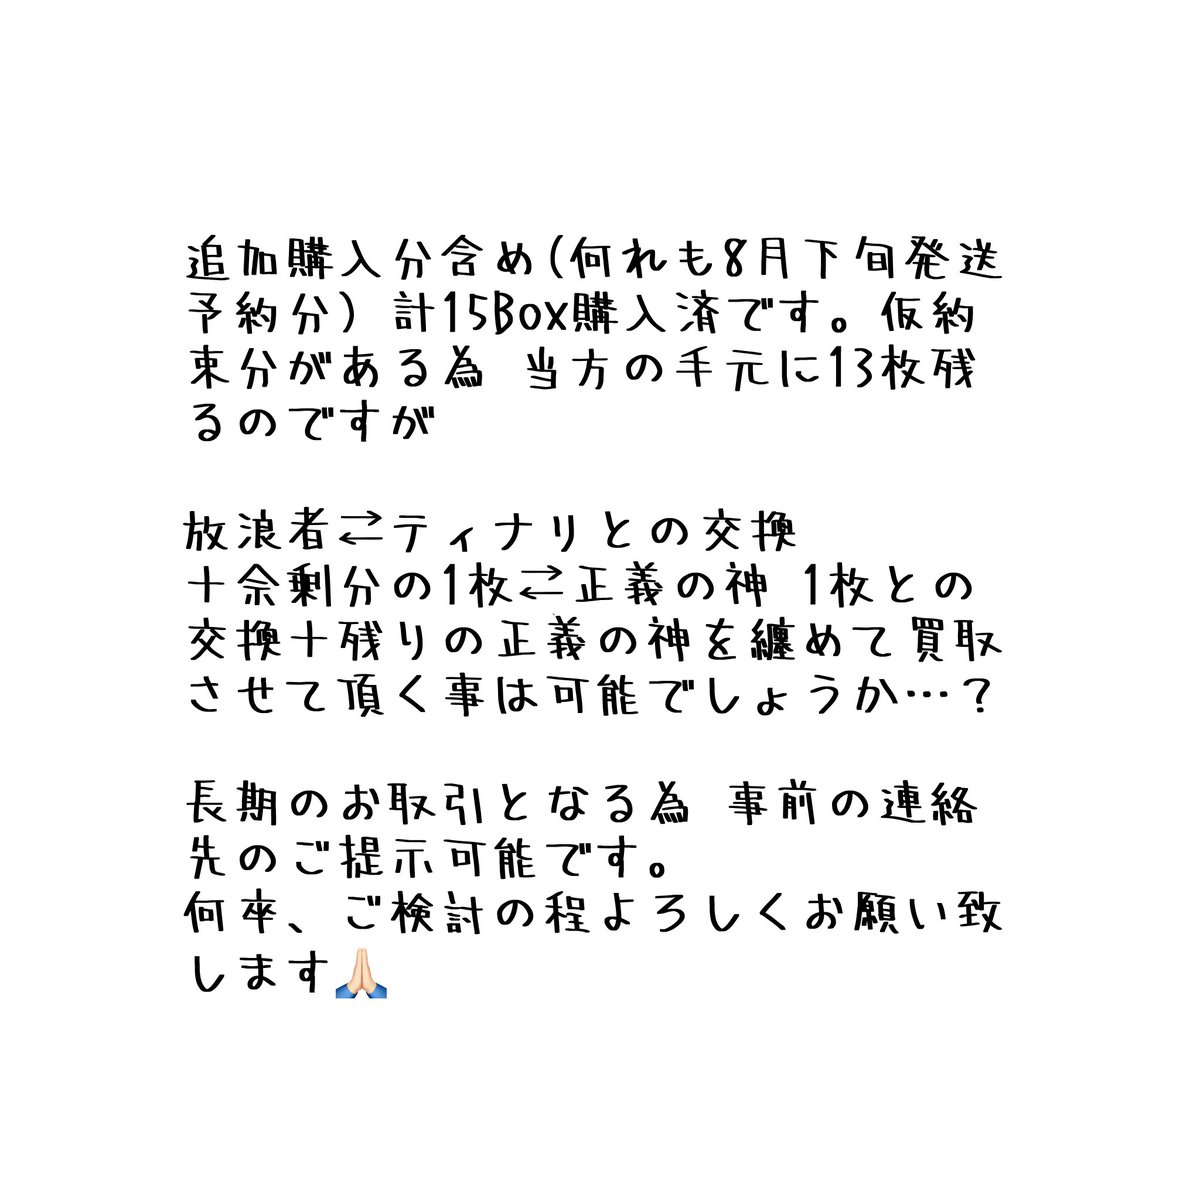 追加購入分含め(何れも8月下旬発送
予約分) 計15Box購入済です。仮約
束分がある為 当方の手元に13枚残
るのですが
放浪者⇄ティナリとの交換
十余剰分の1枚⇄正義の神 1枚との
交換十残りの正義の神を纏めて買取
させて頂く事は可能でしょうか…？
長期のお取引となる為 事前の連絡
先のご提示可能です。
何卒、ご検討の程よろしくお願い致
します🙏🏻